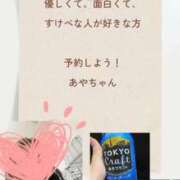 優しくて、面白くて、
すけべな人が好きな方
予約しよう！
あやちゃん
TOKYO
Craft